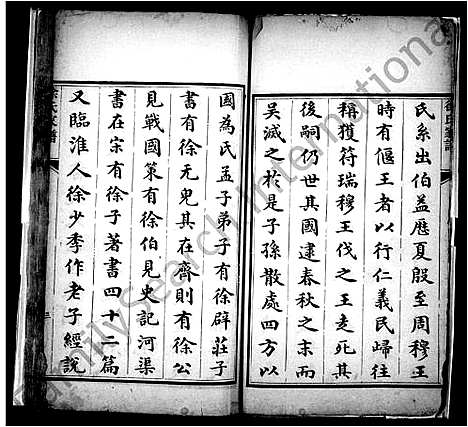 氏系出伯益歷夏殷至周穆王
時有偃王者以行仁義民歸往
稱獲符瑞穆王伐之王走死其
後嗣仍世其國逮春秋之末而
吳滅之於是子孫散處四方以
國為氏孟子弟子有徐辟莊子
書有徐无鬼其在齊則有徐公
見戰國策有徐伯見史記河渠
書在宋有徐子著書四十二篇
又臨淮人徐少季作老子經說
FamilySearch International